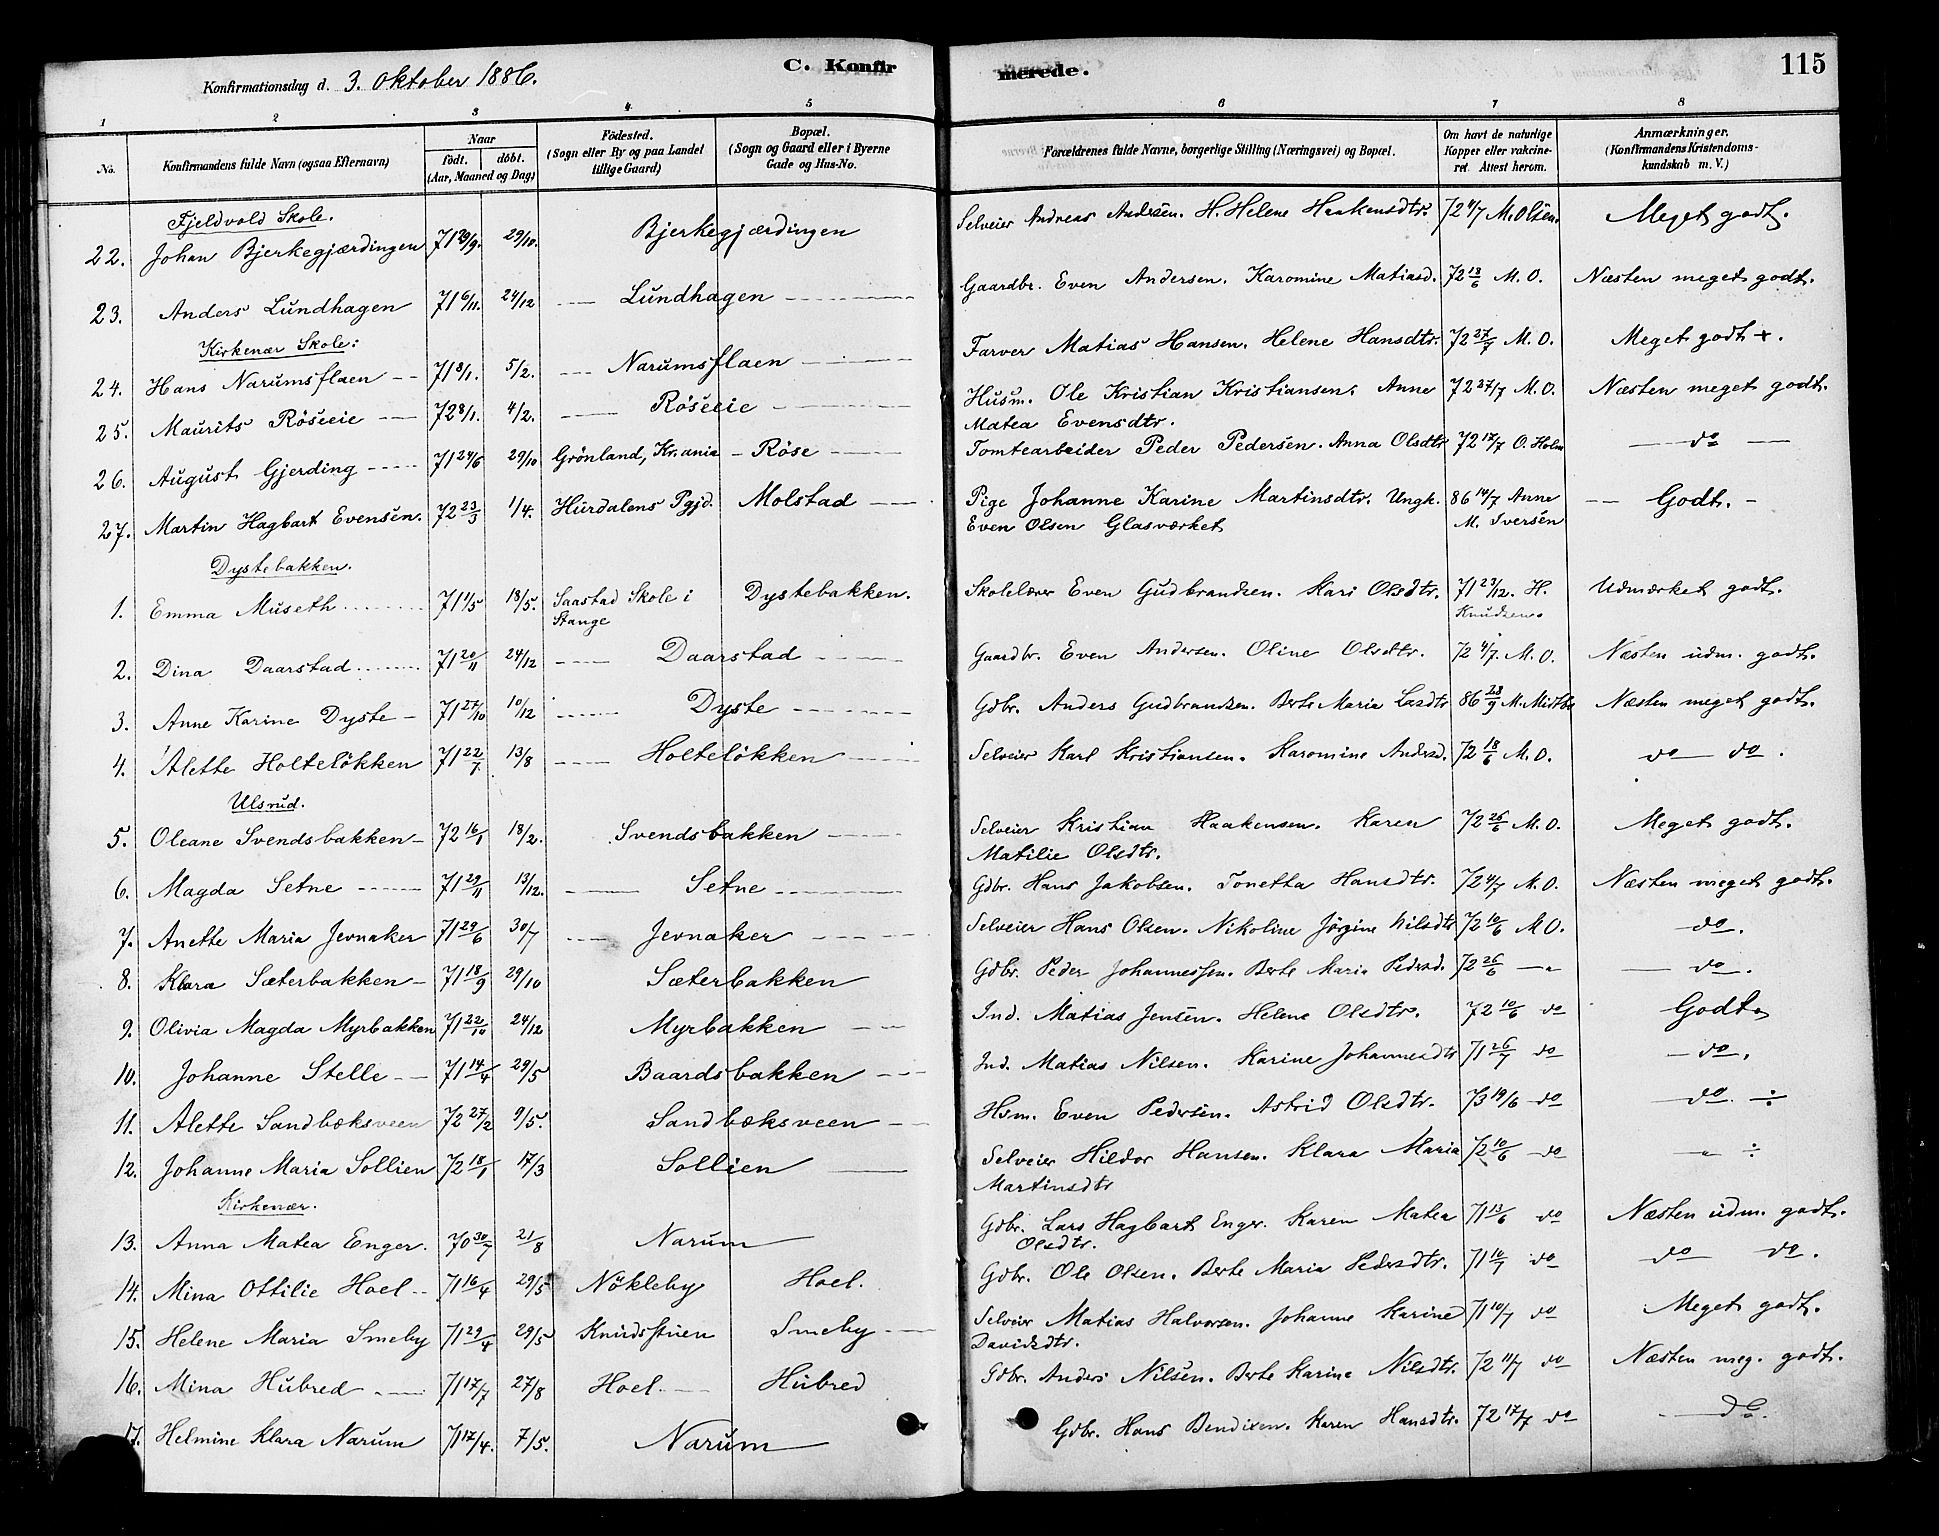 Konfirmationsdag d. 3. Oktober 1886.
C. Konfirmerede.
115
1 2 3 4 5 6 7 8
No.
Konfirmandens fulde Navn (ogsaa Efternavn)
Naar
födt. döbt.
(Aar, Maaned og Dag)
Födested.
(Sogn eller By og paa Landet
tillige Gaard)
Bopæl.
(Sogn og Gaard eller i Byerne
Gade og Hus-No.
Forældrenes fulde Navne, borgerlige Stilling (Næringsvei) og Bopæl.
Om havt de naturlige
Kopper eller vakcine-
ret. Attest herom.
Anmærkninger.
(Konfirmandens Kristendoms-
kundskab m. V.)
Fjeldvold Skole.
22. Johan Bjerkegjærdingen 71 29/9. 29/10. Bjerkegjærdingen Selveier Andreas Andersen. H. Helene Haakensdtr. 72 4/7 M. Olsen. Meget godt.
23. Anders Lundhagen 71 6/11. 24/12 — Lundhagen — Gaardbr. Even Andersen. Karomine Matiasd. 72 18/6 M. O. Næsten meget godt.
Kirkenær Skole:
24. Hans Narumsflaen — 71 8/1. 5/2. — Narumsflaen — Farver Matias Hansen. Helene Hansdtr. 72 27/7 M. O. Meget godt +.
25. Maurits Röseeie — 72 8/1. 4/2. — Röseeie — Husm. Ole Kristian Kristiansen. Anne 72 27/7 M. O. Næsten meget godt.
Matea Evensdtr.
26. August Gjerding — 71 24/6 29/10 Grönland, Kr.ania — Röse — Tomtearbeider Peder Pedersen. Anna Olsdtr 72 17/7 O. Holm — do —
27. Martin Hagbart Evensen. 72 23/3 1/4. Hurdalens Pgjd. Molstad — Pige Johanne Karine Martinsdtr. Ungk. 86 14/7 Anne — Godt. —
Even Olsen Glasværket M. Iversen
Dystebakken.
1. Emma Museth 71 1/5 18/5. Saastad Skole i Dystebakken. Skolelærer Even Gudbrandsen. Kari Olsdtr. 71 23/12. H. Udmærket godt.
Stange Knudsen.
2. Dina Daarstad 71 20/11 24/12 — Daarstad — Gaardbr. Even Andersen. Oline Olsdtr. 72 4/7. M. O. Næsten udm. godt.
3. Anne Karine Dyste — 71 27/10 10/12 — Dyste — Gdbr. Anders Gudbrandsen. Berte Maria Lasdtr 86 28/9 M. Næsten meget godt.
4. Alette Holtelökken 71 22/7 13/8 — Holtelökken — Selveier Karl Kristiansen. Karomine Andersd. 72 18/6 M. O. do — do.
Ulsrud.
5. Oleane Svendsbakken — 72 16/1 18/2. Svendsbakken — Selveier Kristian Haakensen. Karen 72 26/6 M. O. Meget godt.
Matilie Olsdtr.
6. Magda Setne — 71 29/11 13/12. — Setne — Gdbr. Hans Jakobsen. Tonetta Hansdtr. 72 4/7 M. O. Næsten meget godt.
7. Anette Maria Jevnaker 71 29/6 30/7 — Jevnaker — Selveier Hans Olsen. Nikoline Jörgine Nilsdtr 72 10/6 M O. do.
8. Klara Sæterbakken — 71 18/9 29/10 Sæterbakken Gdbr. Peder Johannessen. Berte Maria Pedersd. 72 26/6 — „ — do.
9. Olivia Magda Myrbakken 71 22/10 24/12 Myrbakken — Ind. Matias Jensen. Helene Olsdtr. 72 10/6 do Godt.
10. Johanne Stelle — 71 14/4 29/5 Baardsbakken — Ind. Matias Nilsen. Karine Johannesdtr 71 26/7 do — do.
11. Alette Sandbæksveen 72 27/2 9/5. Sandbæksveen — Hsm. Even Pedersen. Astrid Olsdtr. 73 14/6 do do. ÷
12. Johanne Maria Sollien 72 18/1 17/3 Sollien — Selveier Hildor Hansen. Klara Maria 72 10/6 do — „ ÷
Martinsdtr
Kirkenær.
13. Anna Matea Enger. 70 30/7 21/8 Narum — Gdbr. Lars Hagbart Enger. Karen Matea 71 13/6 do Næsten udm. godt.
Olsdtr.
14. Mina Ottilie Hoel — 71 16/4 29/5 Nökleby Hoel. Gdbr. Ole Olsen. Berte Maria Pedersdtr. 71 10/7 do do do.
15. Helene Maria Smeby 71 29/4 29/5 Knudsstuen Smeby — Selveier Matias Halvorsen. Johanne Karine 71 10/7 do Meget godt.
Davidsdtr.
16. Mina Hubred — 71 17/7 27/8 Hoel. — Hubred Gdbr. Anders Nilsen. Berte Karine Nilsdtr. 72 11/7 do Næsten meg. godt.
17. Helmine Klara Narum 71 17/4. 7/5. Narum — Gdbr. Hans Bendixen. Karen Hansdtr. 72 17/7 do — do.